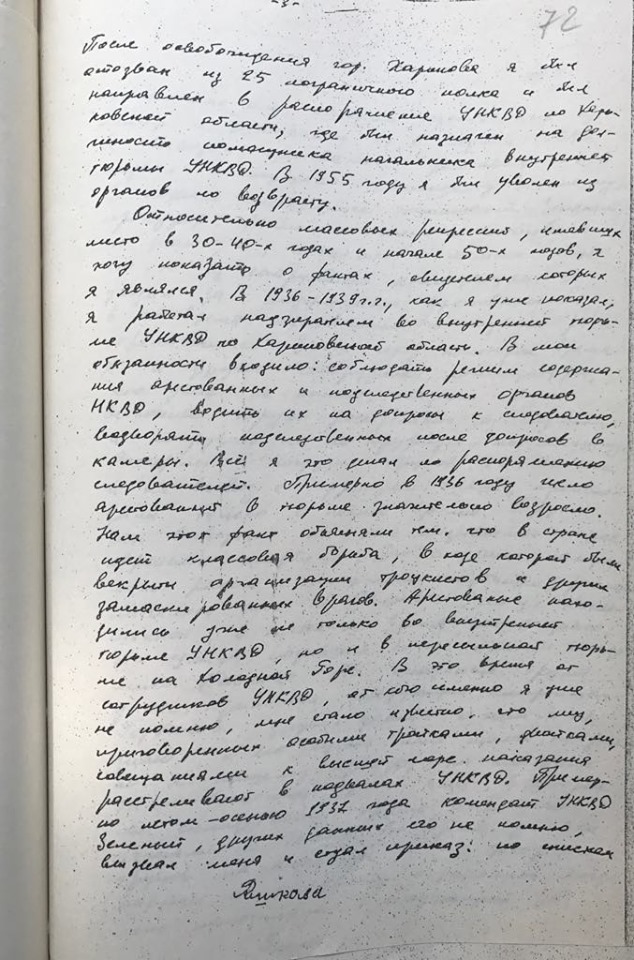 -3-
72
После освобождения гор. Харькова я был
отозван из 25 пограничного полка и был
направлен в распоряжение УНКВД по Харь-
ковской области, где был назначен на дол-
жность помощника начальника внутренней
тюрьмы УНКВД. В 1955 году я был уволен из
органов по возврасту.
Относительно массовых репрессий, имевших
место в 30-40-х годах и начале 50-х годов, я
хочу показать о фактах, свидетелем которых
я являлся. В 1936-1939 г.г., как я уже показал,
я работал надзирателем во внутренней тюрь-
ме УНКВД по Харьковской области. В мои
обязанности входило: соблюдать режим содержа-
ния арестованных и подследственных органов
НКВД, водить их на допросы к следователю,
водворять подследственных после допросов в
камеры. Всё я это делал по распоряжению
следователей. Примерно в 1936 году число
арестованных в тюрьме значительно возросло.
Нам этот факт объясняли тем, что в стране
идет классовая борьба, в ходе которой были
вскрыты организации троцкистов и других
замаскированных врагов. Арестованные нахо-
дились уже не только во внутренней
тюрьме УНКВД, но и в пересыльной тюрь-
ме на Холодной Горе. В это время от
сотрудников УНКВД, от кого именно я уже
не помню, мне стало известно, что лиц,
приговоренных особыми тройками, двойками,
совещаниями к высшей мере наказания
расстреливают в подвалах УНКВД. Пример-
но летом-осенью 1937 года комендант УНКВД
Зеленый, других данных его не помню,
вызвал меня и отдал приказ: по спискам